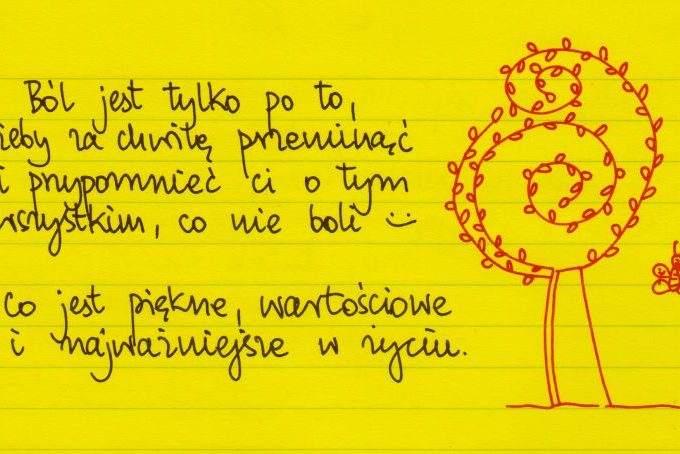 Ból jest tylko po to,
żeby za chwilę przeminąć
i przypomnieć ci o tym
wszystkim, co nie boli
co jest piękne, wartościowe
i najważniejsze w życiu.